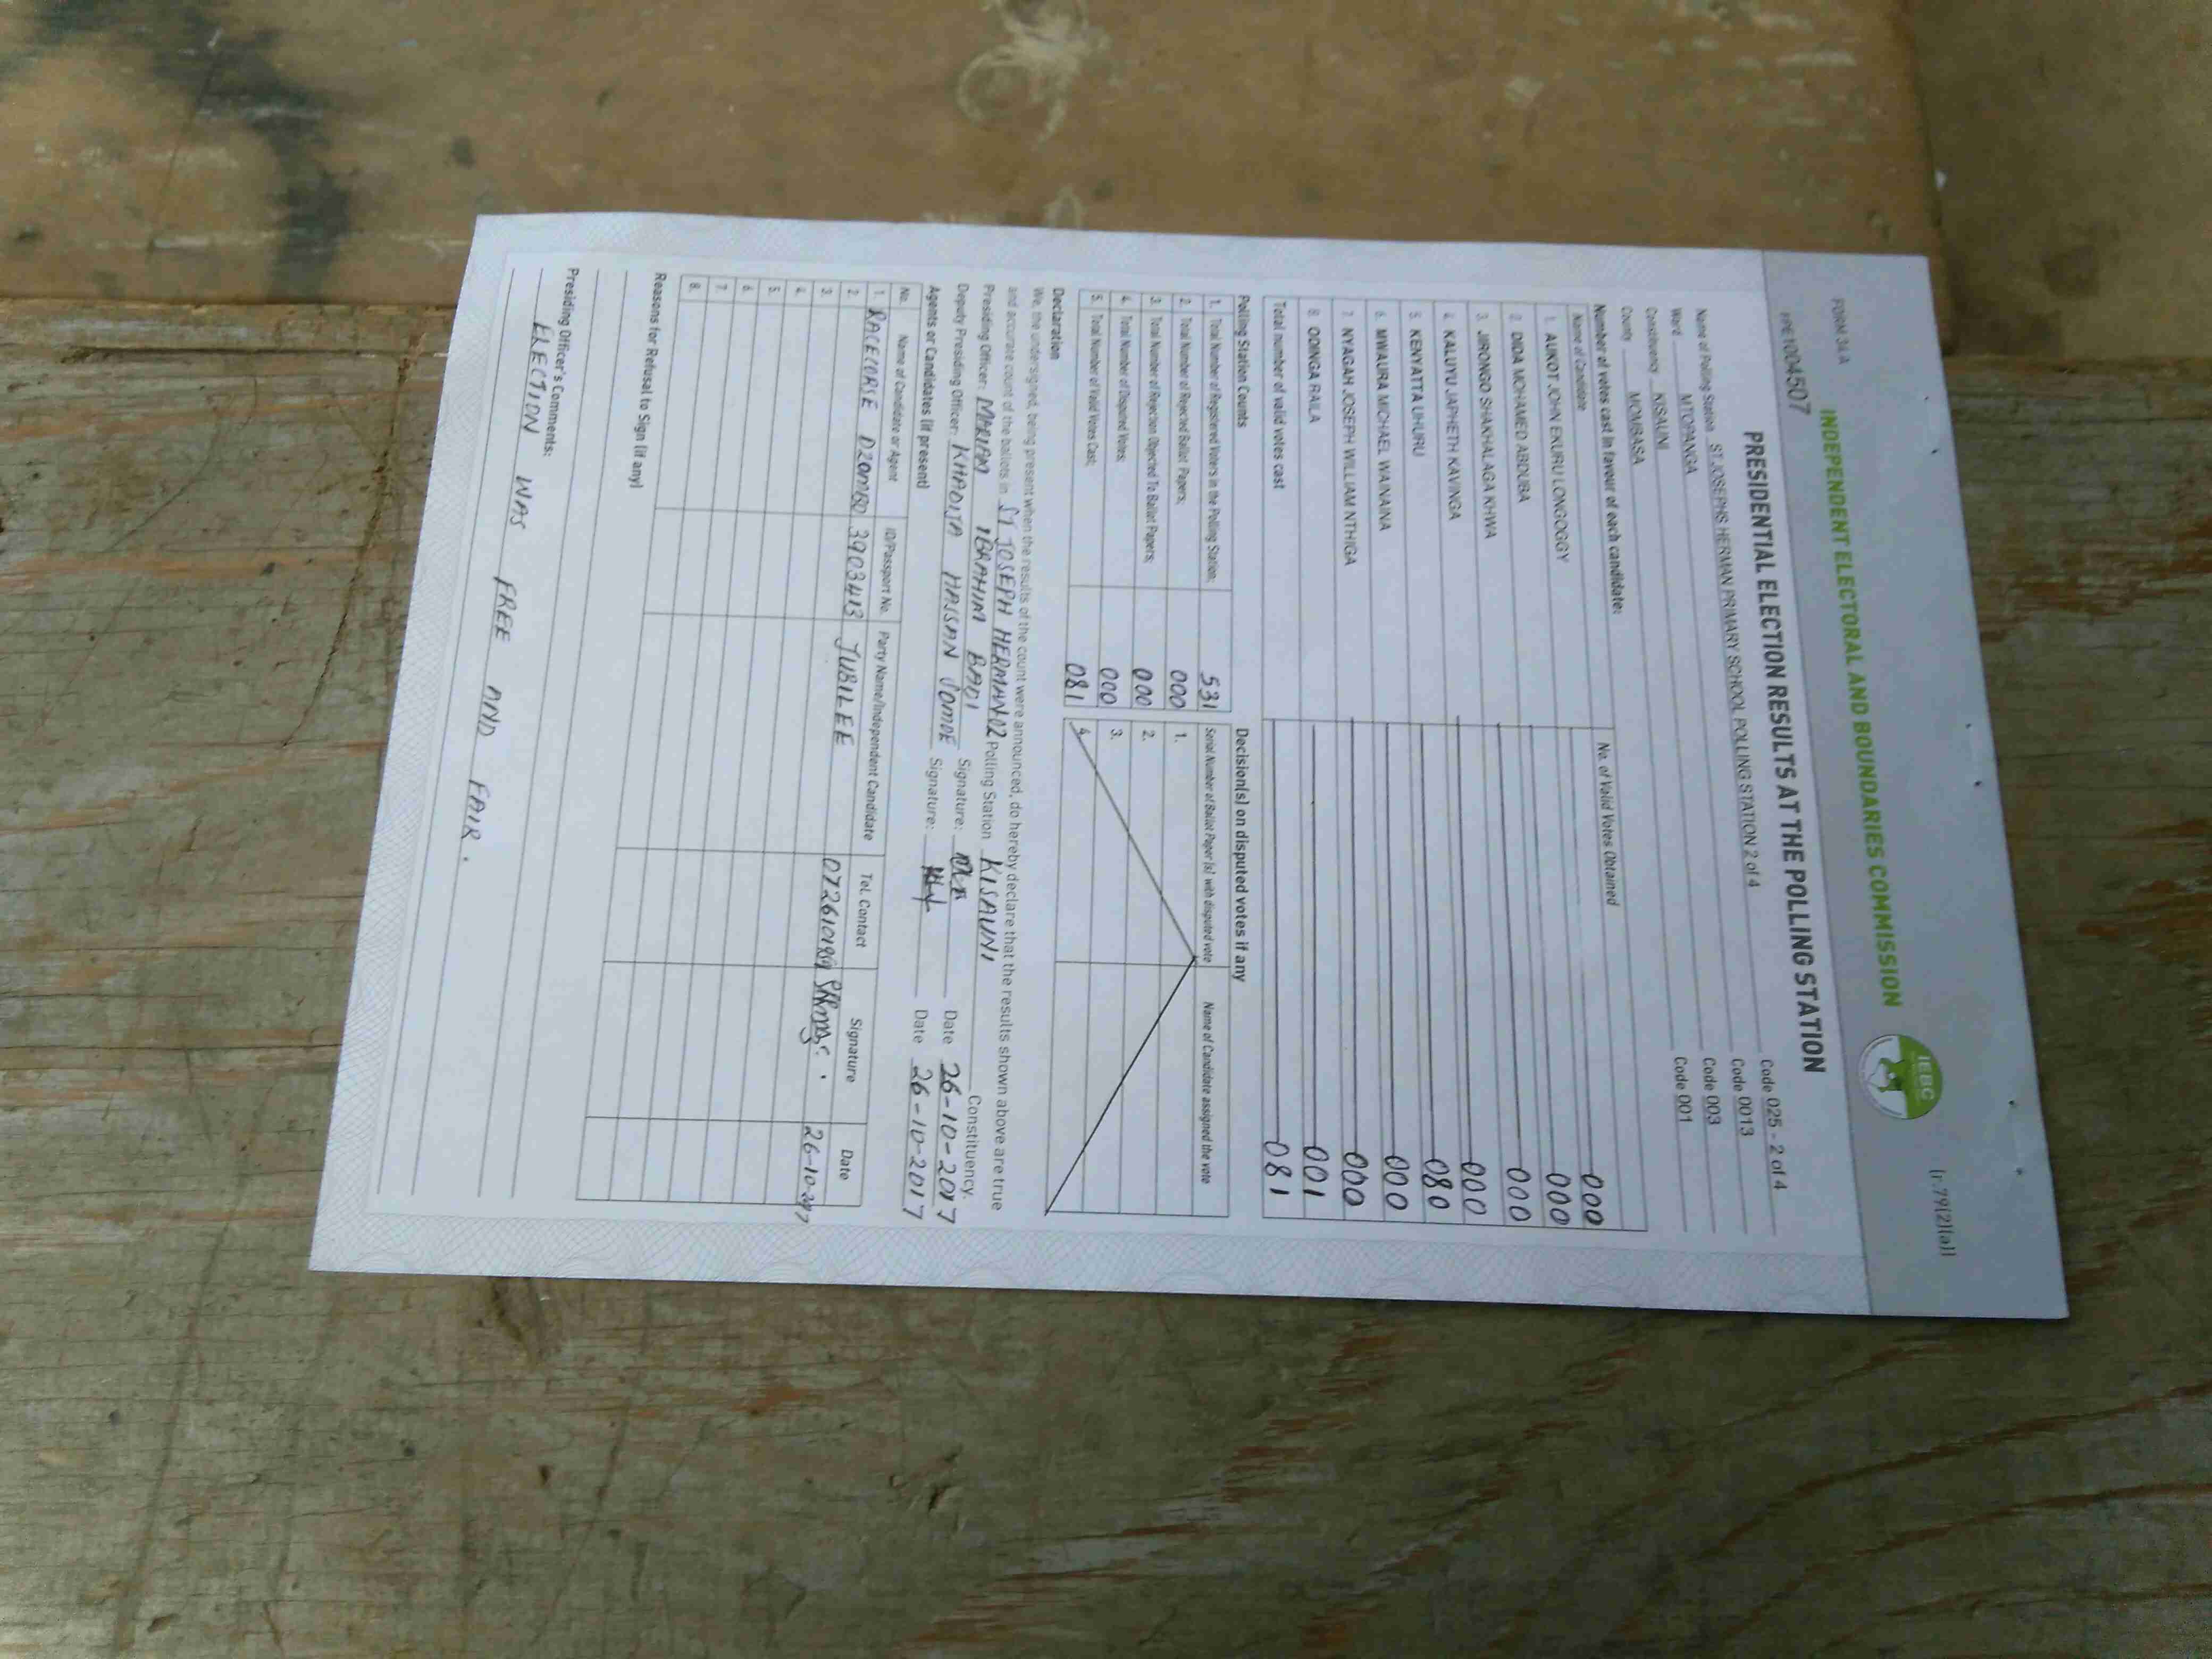 FORM 34 A
(r.79(2)(a))
INDEPENDENT ELECTORAL AND BOUNDARIES COMMISSION
IEBC
PRESIDENTIAL ELECTION RESULTS AT THE POLLING STATION
Name of Polling Station ST JOSEPHS HERMAN PRIMARY SCHOOL POLLING STATION 2 of 4 Code 025 - 2 of 4
Ward MTOPANGA Code 0013
Constituency KISAUNI Code 003
County MOMBASA Code 001
Number of votes cast in favour of each candidate:
Name of Candidate No. of Valid Votes Obtained
1. AUKOT JOHN EKURU LONGOGGY 000
2. DIDA MOHAMED ABDUBA 000
3. JIRONGO SHAKHALAGA KHWA 000
4. KALUYU JAPHETH KAVINGA 000
5. KENYATTA UHURU 080
6. MWAURA MICHAEL WAINAINA 000
7. NYAGAH JOSEPH WILLIAM NTHIGA 000
8. ODINGA RAILA 001
Total number of valid votes cast 081
Polling Station Counts
1. Total Number of Registered Voters in the Polling Station; 531
2. Total Number of Rejected Ballot Papers; 000
3. Total Number of Rejection Objected To Ballot Papers; 000
4. Total Number of Disputed Votes; 000
5. Total Number of Valid Votes Cast; 081
Decision(s) on disputed votes if any
Serial Number of Ballot Paper (s) with disputed vote Name of Candidate assigned the vote
1.
2.
3.
4.
Declaration
We, the undersigned, being present when the results of the count were announced, do hereby declare that the results shown above are true
and accurate count of the ballots in ST JOSEPH HERMAN 02 Polling Station KISAUNI Constituency.
Presiding Officer: MARIAM IBRAHIM BADI Signature: Date 26-10-2017
Deputy Presiding Officer: KHADIJA HASSAN JOMDE Signature: Date 26-10-2017
Agents or Candidates (if present)
No. Name of Candidate or Agent ID/Passport No. Party Name/Independent Candidate Tel. Contact Signature Date
1. RACECORSE DZOMBO 3903413 JUBILEE 26-10-2017
2.
3.
4.
5.
6.
7.
8.
Reasons for Refusal to Sign (if any)
Presiding Officer's Comments:
ELECTION WAS FREE AND FAIR.